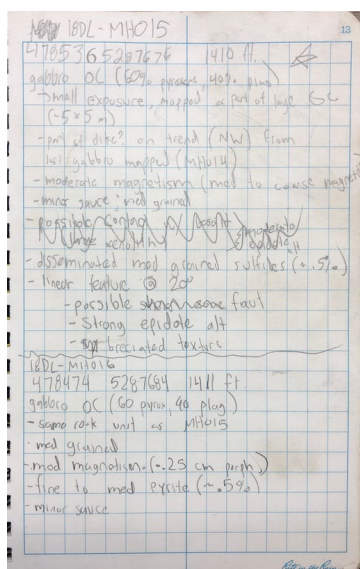 13
18DL-MH015
478536 5287676 1410 ft.
gabbro OC (60% pyroxene, 40% plag)
→ small exposure, mapped a part of large OC
(~5 x 5 m)
- part of dike? on trend (NW) from
last gabbro mapped (MH014)
- moderate magnetism (med to coarse magnetite
- minor sauce; med grained
- possible contact
xenolith
epidote
- disseminated med grained sulfides (~.5%)
- linear feature @ 20°
- possible faut
- strong epidote alt
- breciated texture
18DL-MH016
478474 5287684 1411 ft
gabbro OC (60 pyrox, 40 plag)
- same rock unit as MH015
- med grained
- mod magnetism (~.25 cm porph,)
- fine to med pyrite (~.5%)
- minor sauce
Rite in the Rain